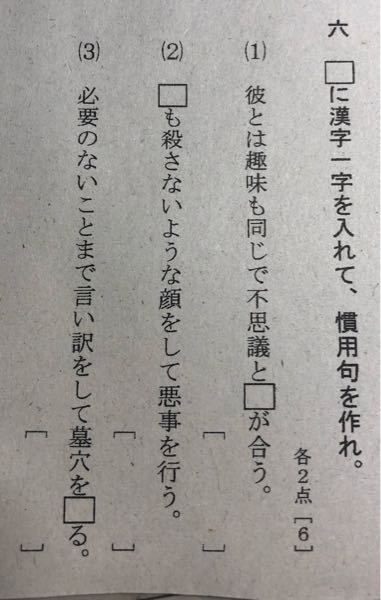 六 □に漢字一字を入れて、慣用句を作れ。
各2点［6］
(1) 彼とは趣味も同じで不思議と□が合う。
［ ］
(2) □も殺さないような顔をして悪事を行う。
［ ］
(3) 必要のないことまで言い訳をして墓穴を□る。
［ ］